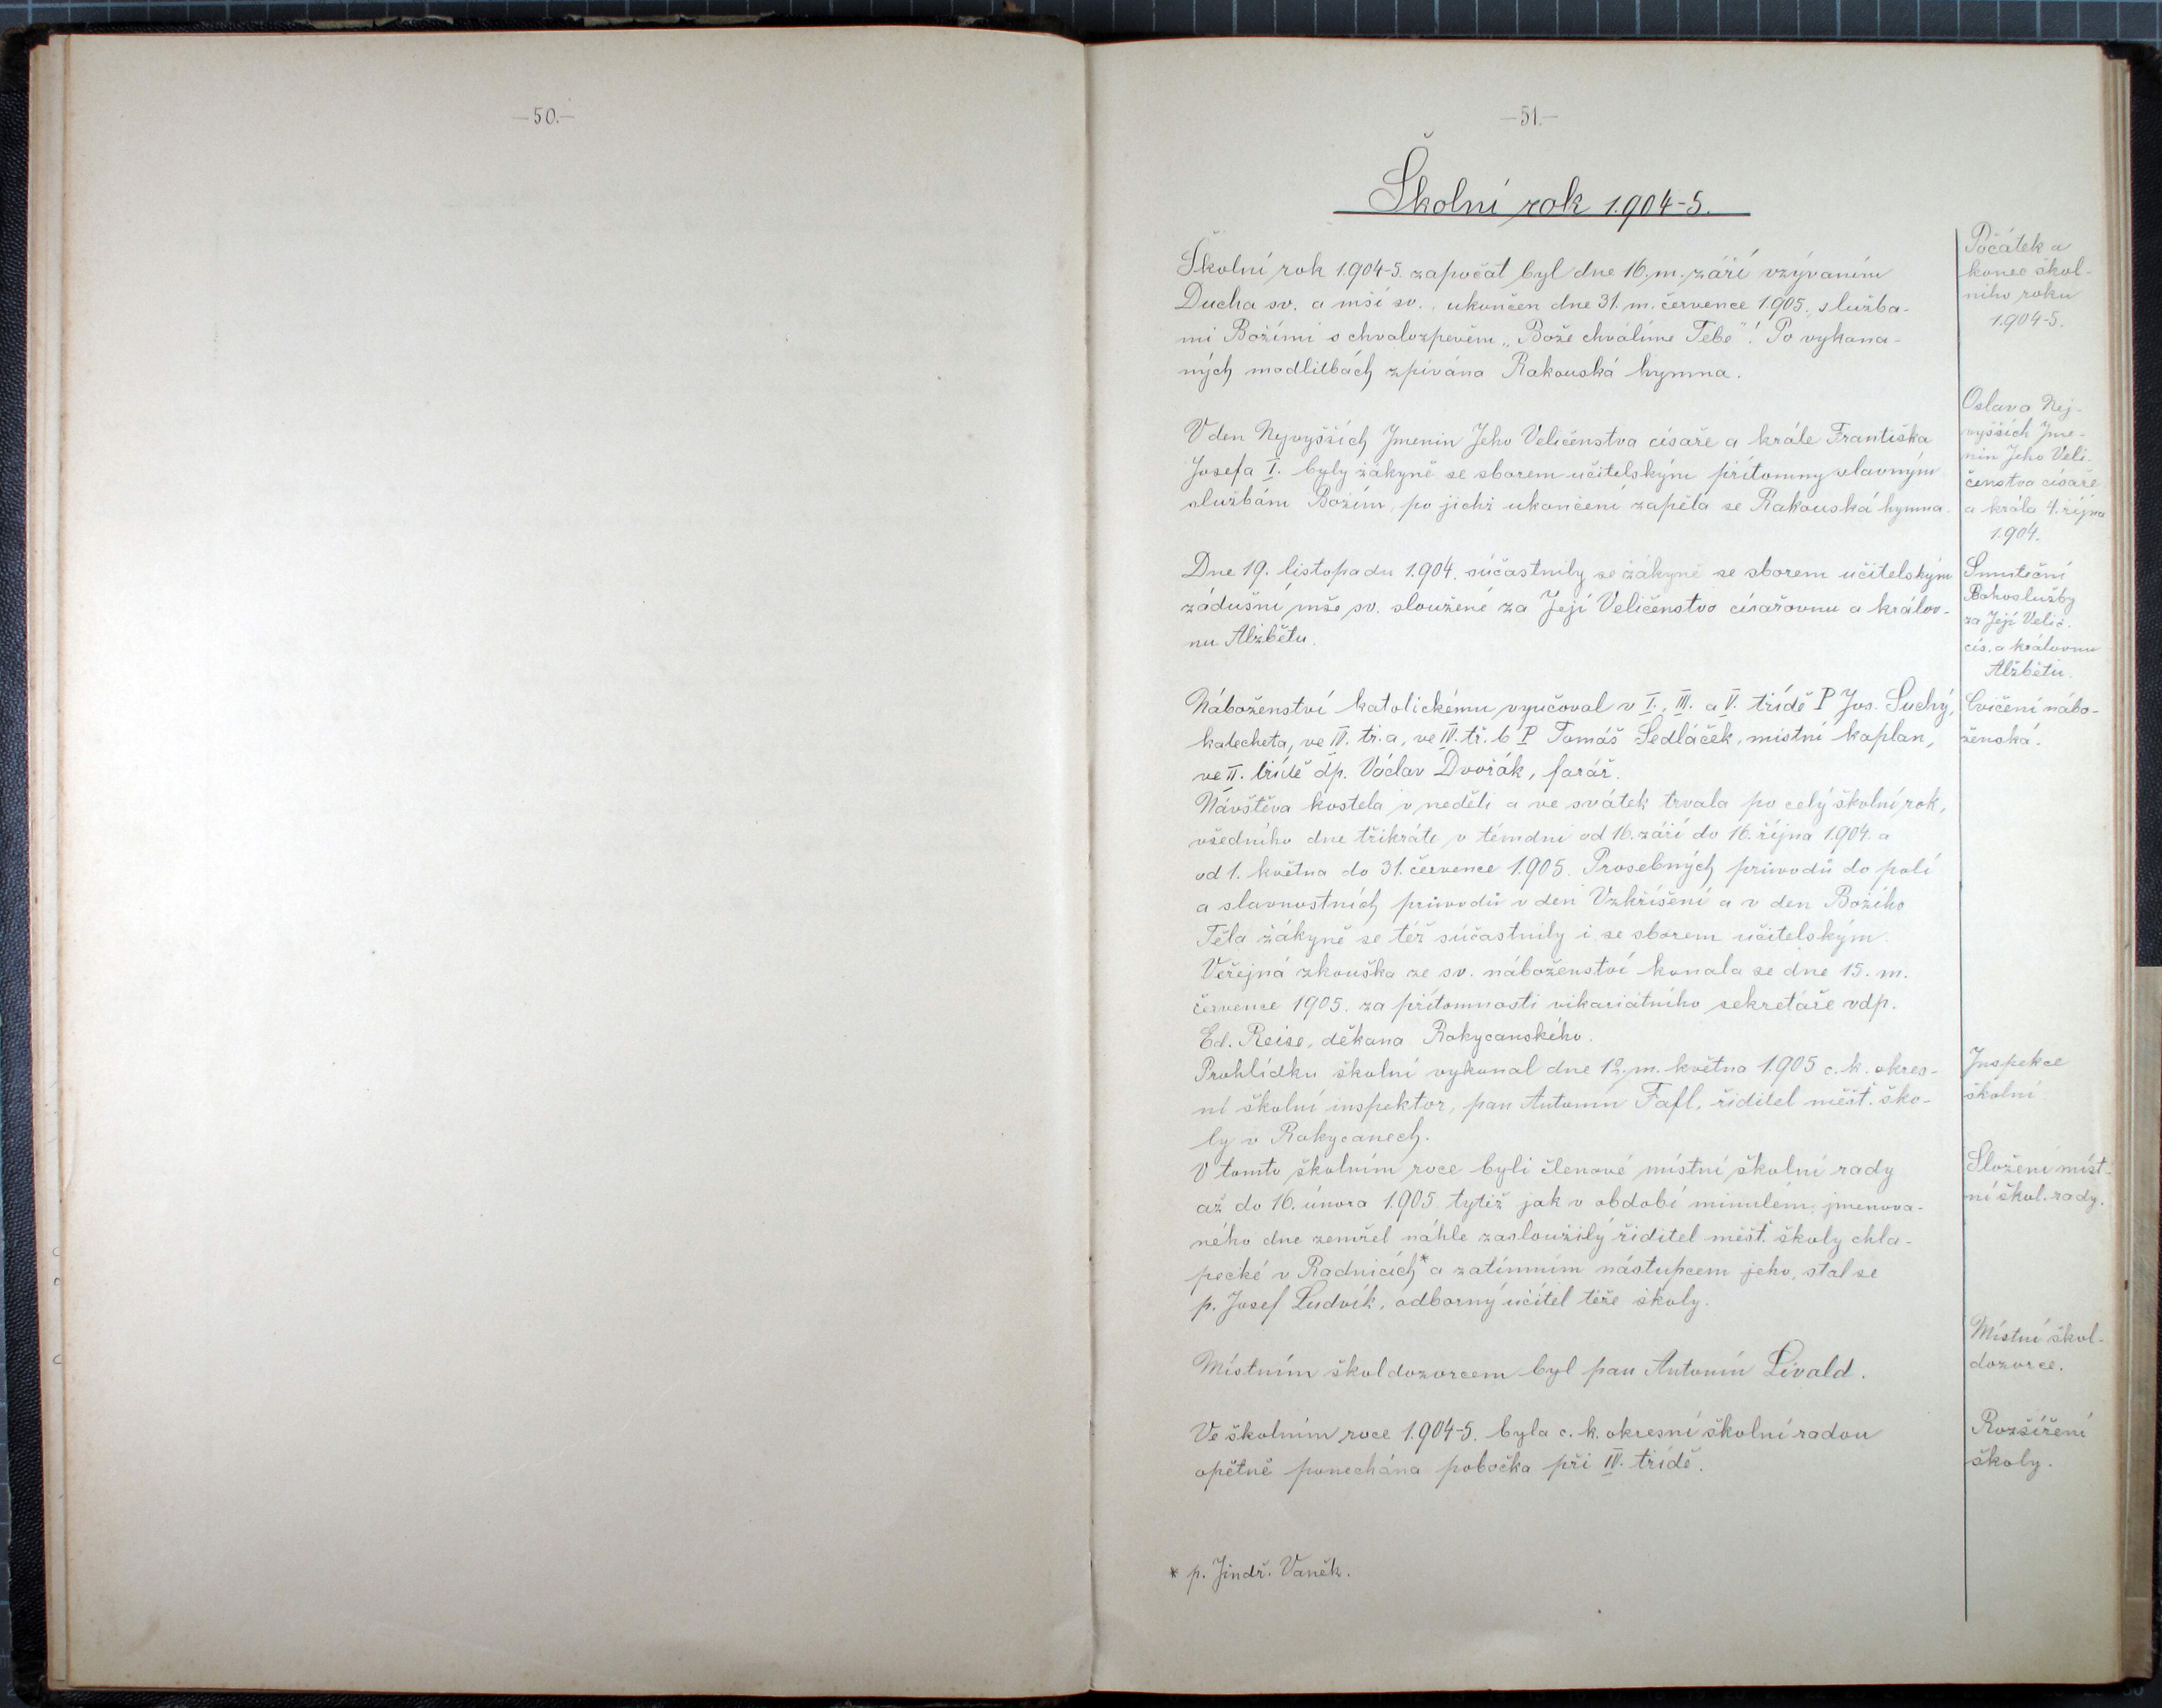 —50.—
—51.—
Školní rok 1904-5.
Školní rok 1904-5. započat byl dne 16. m. září vzýváním
Ducha sv. a mší sv., ukončen dne 31. m. července 1905. služba-
mi Božími s chvalozpěvem „Bože chválíme Tebe"! Po vykona-
ných modlitbách zpívána Rakouská hymna.
Počátek a
konec škol-
ního roku
1904-5.
V den Nejvyšších Jmenin Jeho Veličenstva císaře a krále Františka
Josefa I. byly žákyně se sborem učitelským přítomny slavným
službám Božím, po jichž ukončení zapěla se Rakouská hymna.
Oslava Nej-
vyšších Jme-
nin Jeho Veli-
čenstva císaře
a krále 4. října
1904.
Dne 19. listopadu 1904. súčastnily se žákyně se sborem učitelským
zádušní mše sv. sloužené za Její Veličenstvo císařovnu a králov-
nu Alžbětu.
Smuteční
Bohoslužby
za Její Velič.
cís. a královnu
Alžbětu.
Náboženství katolickému vyučoval v I., III. a V. třídě P Jos. Suchý,
katecheta, ve IV. tř. a, ve IV. tř. b P Tomáš Sedláček, místní kaplan,
ve II. třídě dp. Václav Dvořák, farář.
Cvičení nábo-
ženská.
Návštěva kostela v neděli a ve svátek trvala po celý školní rok,
všedního dne třikráte v témdni od 16. září do 16. října 1904. a
od 1. května do 31. července 1905. Prosebných průvodů do polí
a slavnostních průvodů v den Vzkříšení a v den Božího
Těla žákyně se též súčastnily i se sborem učitelským.
Veřejná zkouška ze sv. náboženství konala se dne 15. m.
července 1905. za přítomnosti vikariátního sekretáře vdp.
Ed. Reise, děkana Rokycanského.
Prohlídku školní vykonal dne 12. m. května 1905 c. k. okres-
ní školní inspektor, pan Antonín Fafl, řiditel měšť. ško-
ly v Rokycanech.
Inspekce
školní
V tomto školním roce byli členové místní školní rady
až do 16. února 1905 tytéž jak v období minulém, jmenova-
ného dne zemřel náhle zasloužilý řiditel měšť. školy chla-
pecké v Radnicích* a zatímním nástupcem jeho, stal se
p. Josef Ludvík, odborný učitel téže školy.
Složení míst-
ní škol. rady.
Místním školdozorcem byl pan Antonín Livald.
Místní škol-
dozorce.
Ve školním roce 1904-5. byla c. k. okresní školní radou
opětně ponechána pobočka při IV. třídě.
Rozšíření
školy.
* p. Jindř. Vaněk.